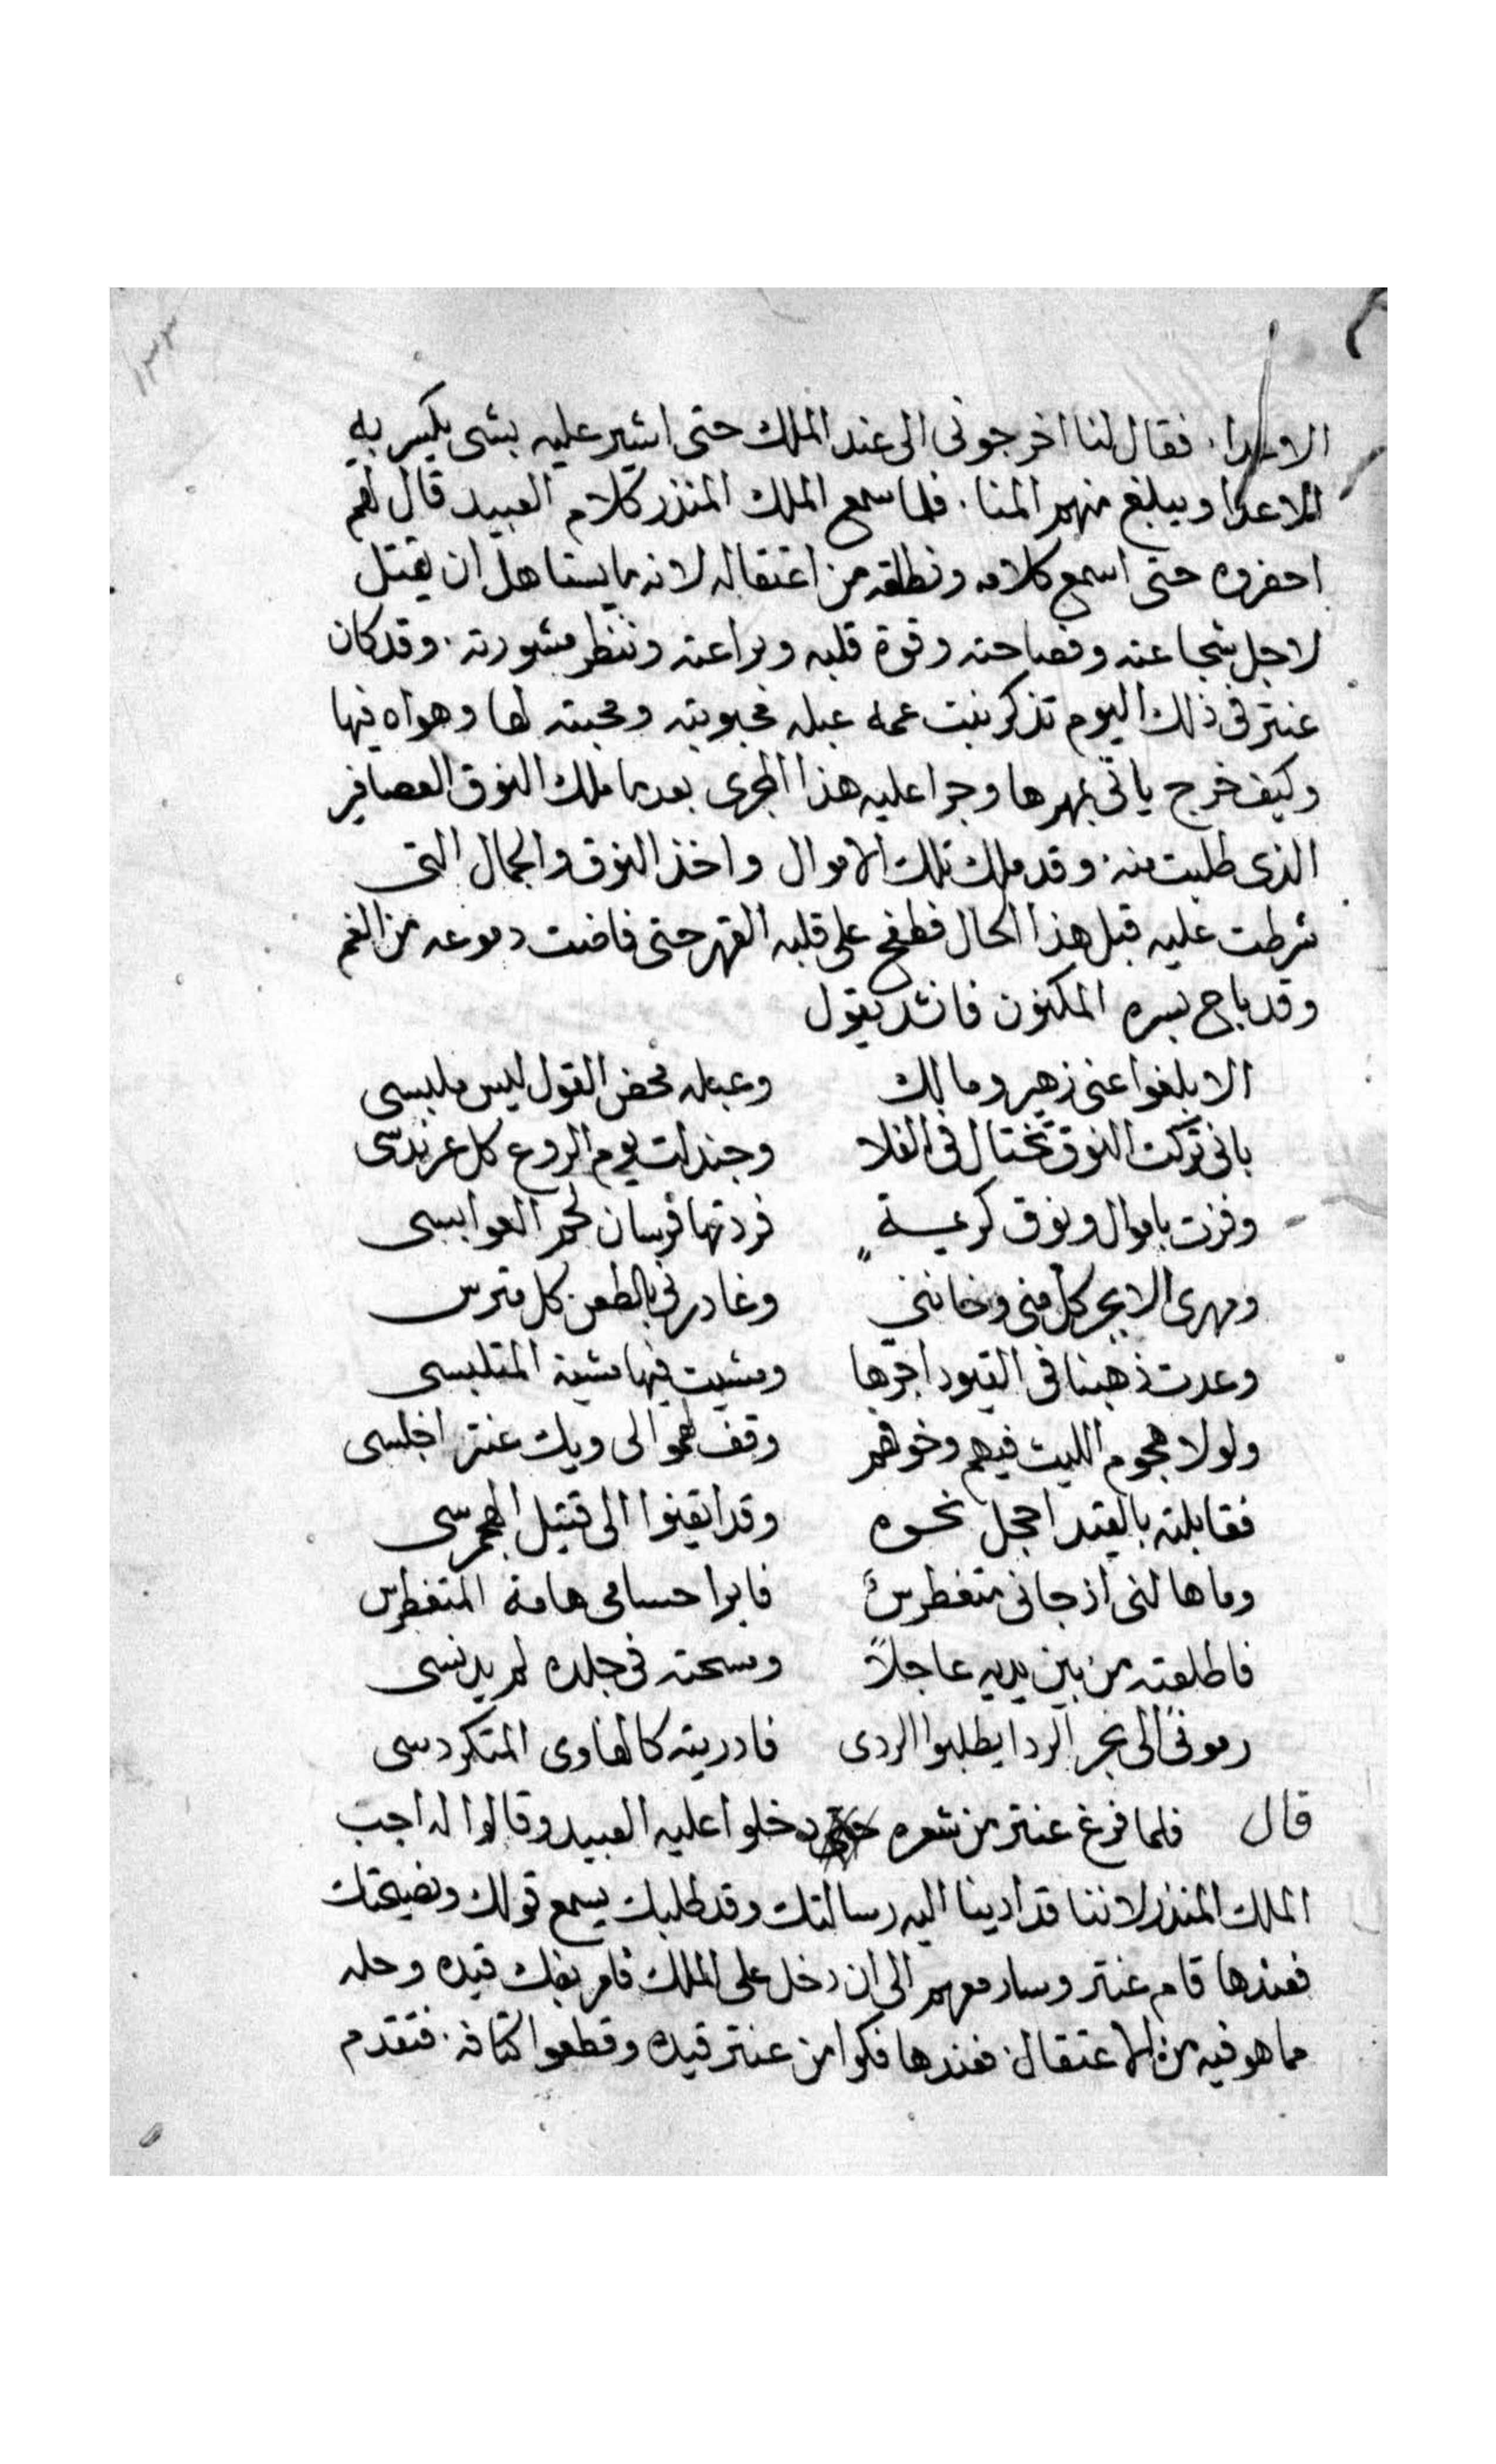 ١٣٣
الاعدا. فقال لنا اخرجونى الى عند الملك حتى اشير عليه بشى يكسر به
الاعدا ويبلغ منهم المنا. فلما سمع الملك المنذر كلام العبيد قال لهم
احضروه حتى اسمع كلامه ونطلقه من اعتقاله لانه ما يستاهل ان يقتل
لاجل شجاعته وفصاحته وقوة قلبه وبراعته وننظر مشورته. وقد كان
عنتر فى ذلك اليوم تذكر بنت عمه عبله محبوبته ومحبته لها وهواه فيها
وكيف خرج ياتى بمهرها وجرا عليه هذا المجرى بعد ما ملك النوق العصافير
الذى طلبت منه. وقد ملك تلك الاموال واخذ النوق والجمال التى
شرطت عليه قبل هذا الحال فطفح على قلبه القهر حتى فاضت دموعه من الغم
وقد باح بسره المكنون فانشد يقول
الا بلغوا عنى زهير ومالك وعبله محض القول ليس ملبسى
بانى تركت النوق تختال فى الفلا وجندلت يوم الروع كل عرندسى
وفزت باموال ونوق كريمة فردتها فرسان لخم العوابسى
ومهرى الابجر كل منى وخاننى وغادرنى بالطعن كل مترس
وعدت ذهينا فى القيود اجرها ومشيت فيها مشية المتلبسى
ولولا هجوم الليث فيهم وخوفهم وقف لهموا لى ويك عنتر اجلسى
فقابلته بالقيد احجل نحوه وقد ايقنوا الى قتيل الهجمرسى
وما هالنى اذ جانى متغطرسٌ فابرا حسامى هامة المتغطرس
فاطلعته من بين يديه عاجلاً وسحته فى جلده لم يدنسى
رمونى الى بحر الردا يطلبوا الردى فادريته كالهاوى المتكردسى
قال فلما فرغ عنتر من شعره دخلوا عليه العبيد وقالوا له اجب
الملك المنذر لاننا قد ادينا اليه رسالتك وقد طلبك يسمع قولك ونصيحتك
فعندها قام عنتر وسار معهم الى ان دخل على الملك فامر بفك قيده وحله
مما هو فيه من الاعتقال. فعندها فكوا من عنتر قيده وقطعوا كتافه. فتقدم